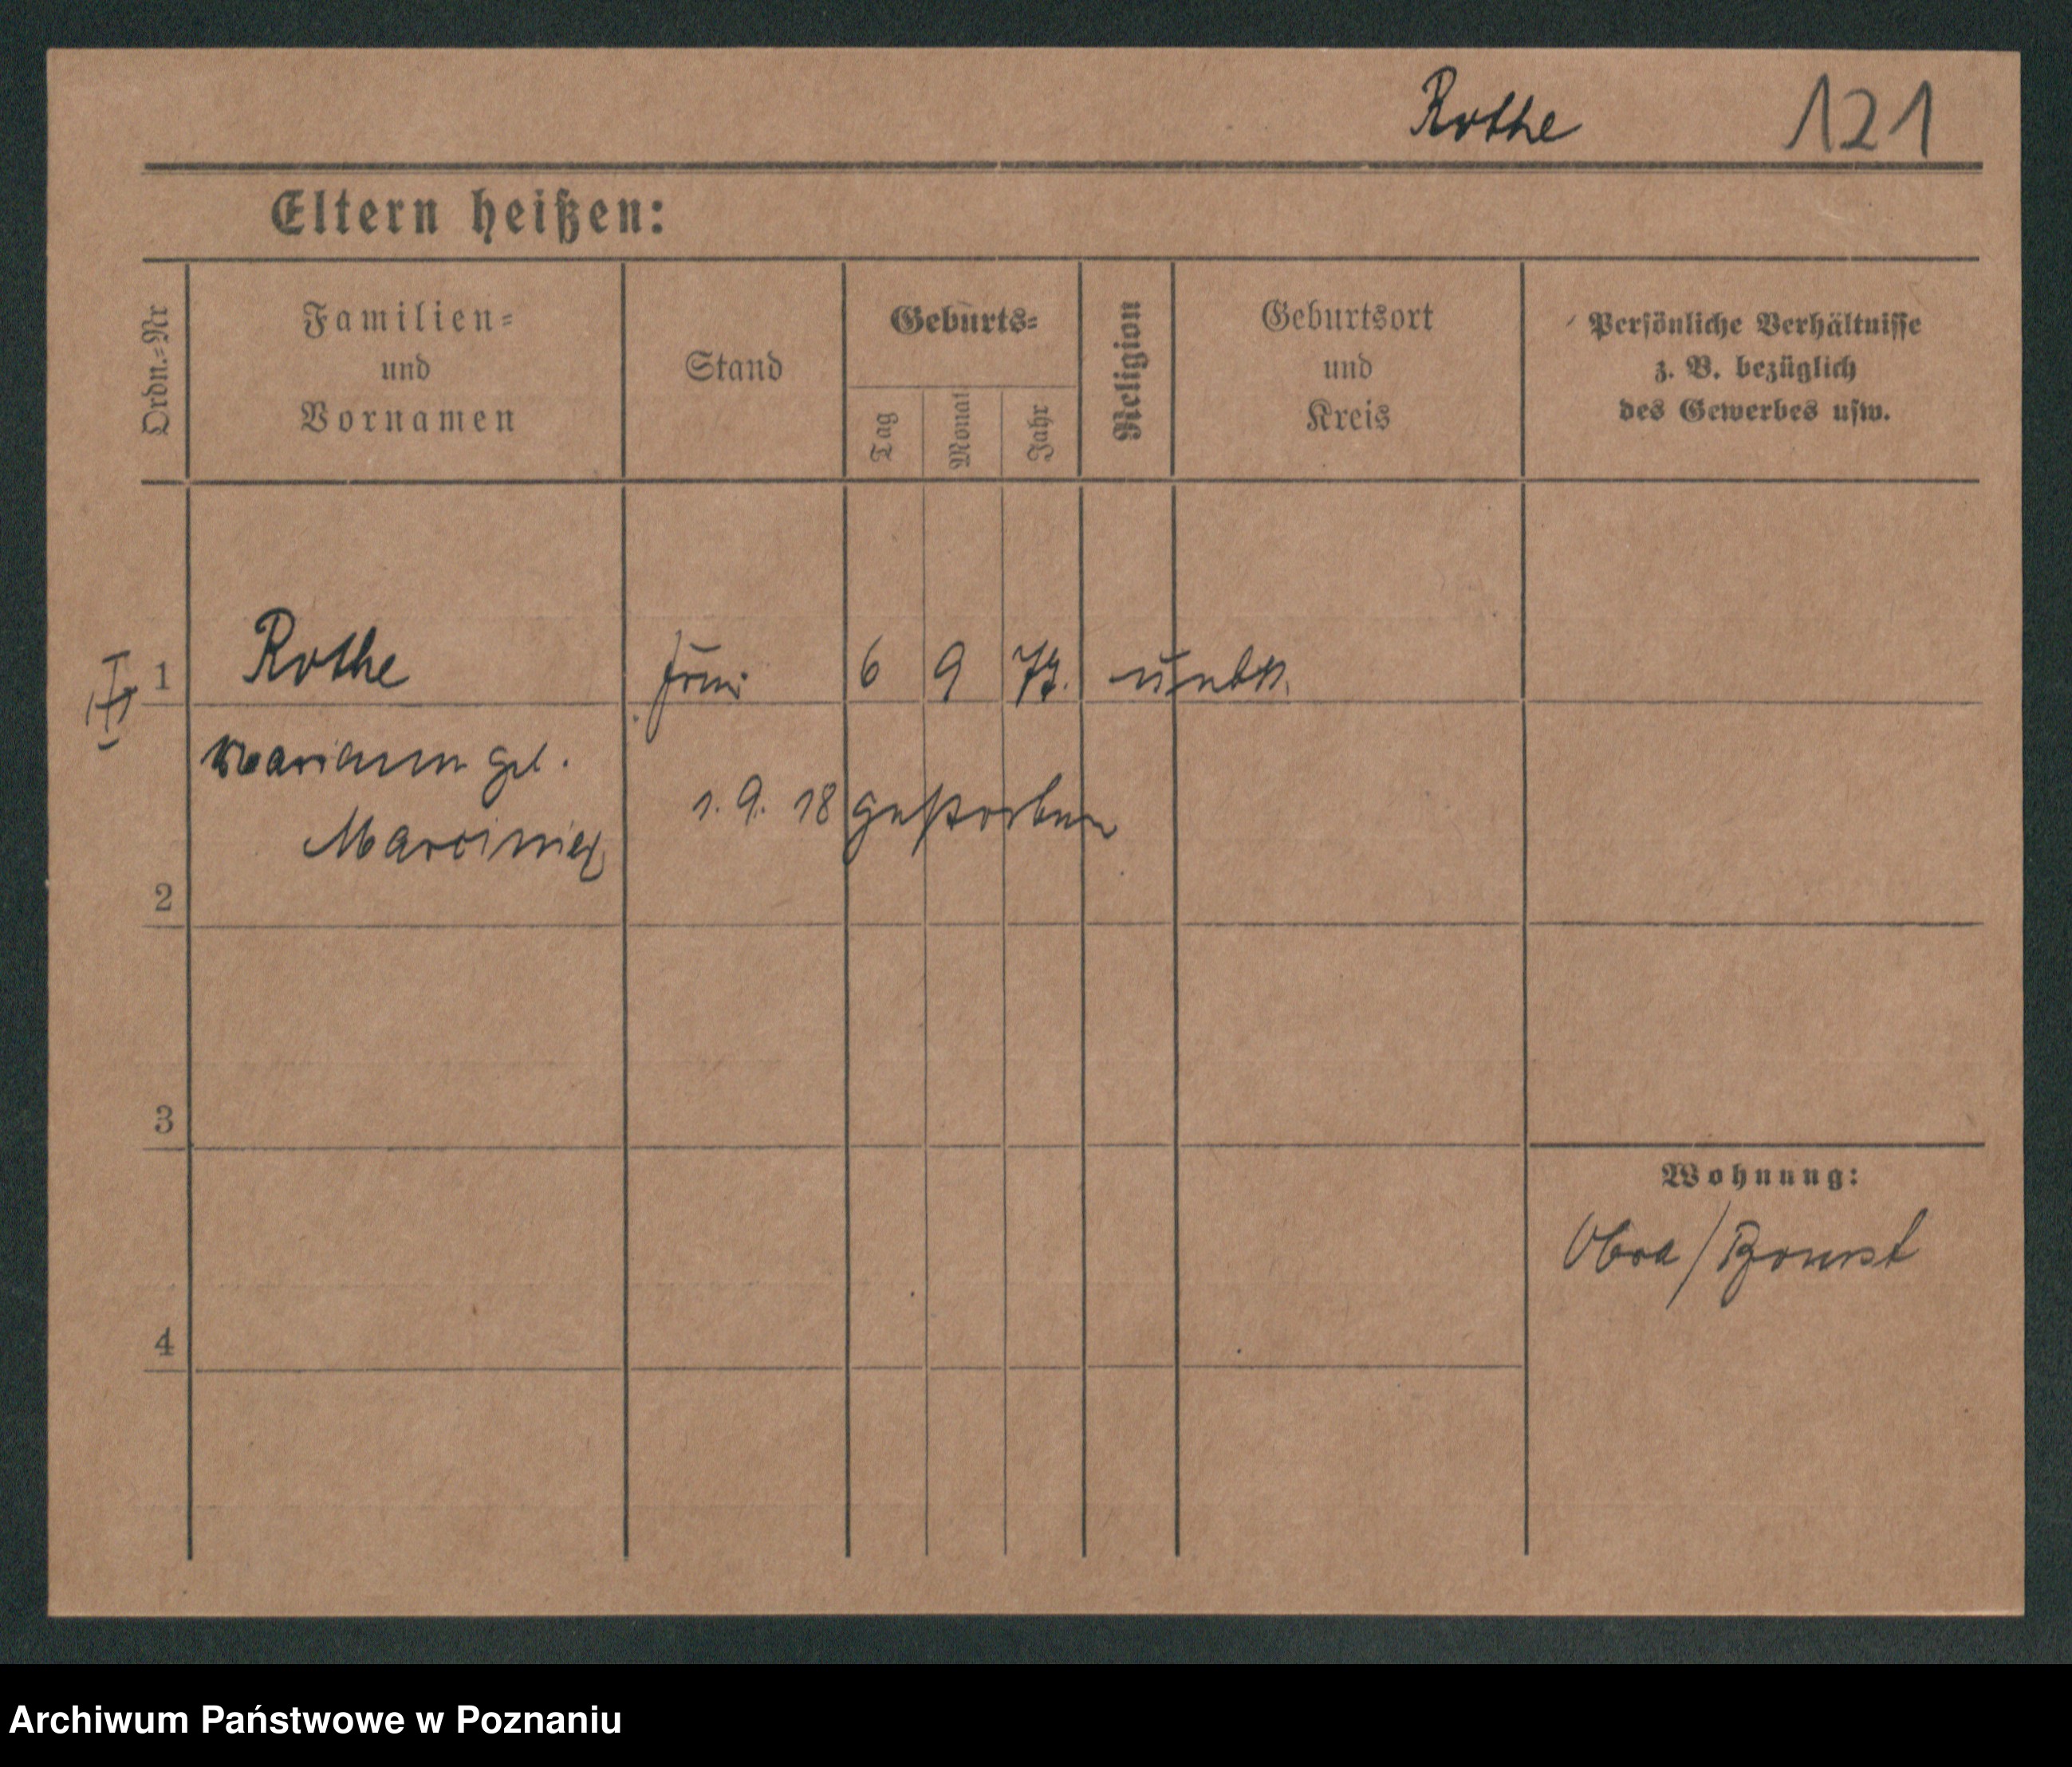 Rothe 121
Eltern heißen:
Ordn.=Nr
Familien=
und
Vornamen
Stand
Geburts=
Tag
Monat
Jahr
Religion
Geburtsort
und
Kreis
Persönliche Verhältnisse
z. B. bezüglich
des Gewerbes usw.
1 Rothe 6 9 unbk.
Mariann geb.
1. 9. 18 gestorben
2
3
4
Wohnung:
Obra / Bomst
Archiwum Państwowe w Poznaniu